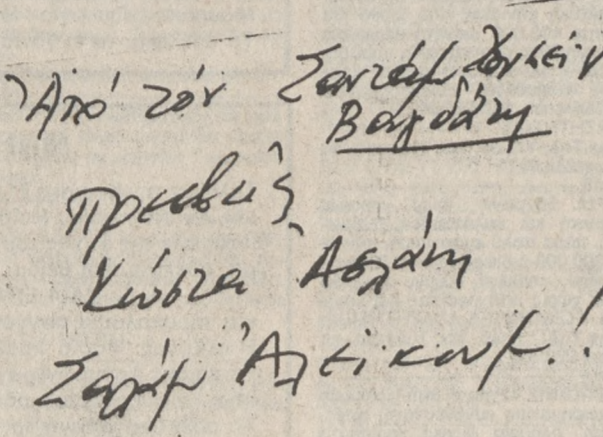 Ἀπό τόν Σαντάμ Χουσεϊν
Βαγδάτη
Πρεσβυς
Κώστα Ἀσλάνη
Σαλάμ Ἀλεϊκουμ!